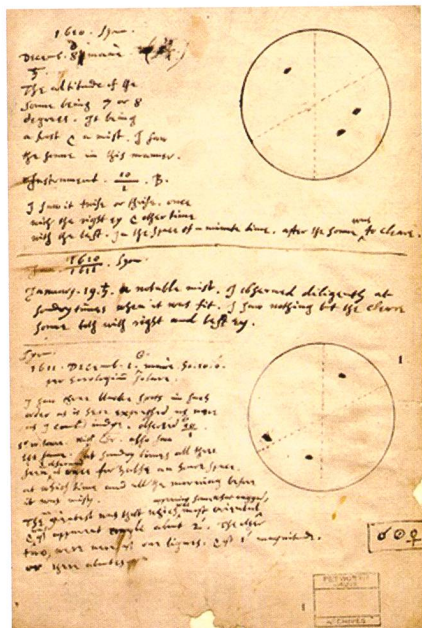 1610. Syon.
Decemb. 8. mane
♄.
The altitude of the
sonne being 7 or 8
degrees. It being
a frost & a mist. I saw
the sonne in this manner.
Instrument. 10/1. B.
I saw it twise or thrise. once
with the right ey & other time
with the left. In the space of a minute time. after the sonne was to cleare.
1610/1611. Syon.
January. 19. ♄. a notable mist. I observed diligently at
sondry times when it was fit. I saw nothing but the cleare
sonne both with right and left ey.
Syon.
1611. Decemb. 1. mane. ho. 10. 0.
per horologium Solare.
I saw three blacke spots in such
order as is here expressed as nere
as I could iudge. observed
also saw
the same. at sondry times all three
seen at once for halfe an houre space.
at which time and all the morning before
it was misty.
The greatest was that which
apparent angle about 2'. The other
two, were neere of one bignes. magnitude.
or there abouts.
1
♂ ☉ ♀
PETWORTH
HOUSE
ARCHIVES
1